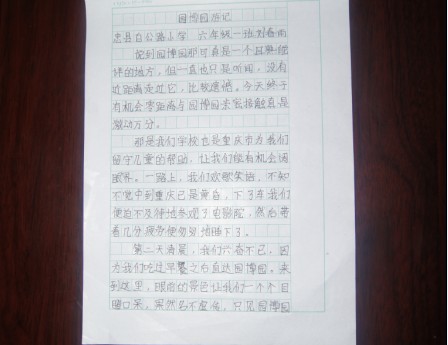 园博园游记
忠县白公路小学 六年级一班刘春雨
说到园博园那可真是一个耳熟能
详的地方，但一直也只是听闻，没有
近距离走近它，比较遗憾。今天终于
有机会零距离与园博园亲密接触真是
激动万分。
那是我们学校也是重庆市为我们
留守儿童的帮助，让我们能有机会阔
眼界。一路上，我们欢歌笑语，不知
不觉中到重庆已是黄昏，下了车我们
便迫不及待地参观了电脑院，然后带
着几分疲劳便匆匆地睡下了。
第二天清晨，我们兴奋不已，因
为我们吃过早餐之后直达园博园。来
到这里，眼前的景色让我们一个个目
瞪口呆，果然名不虚传，只见园博园